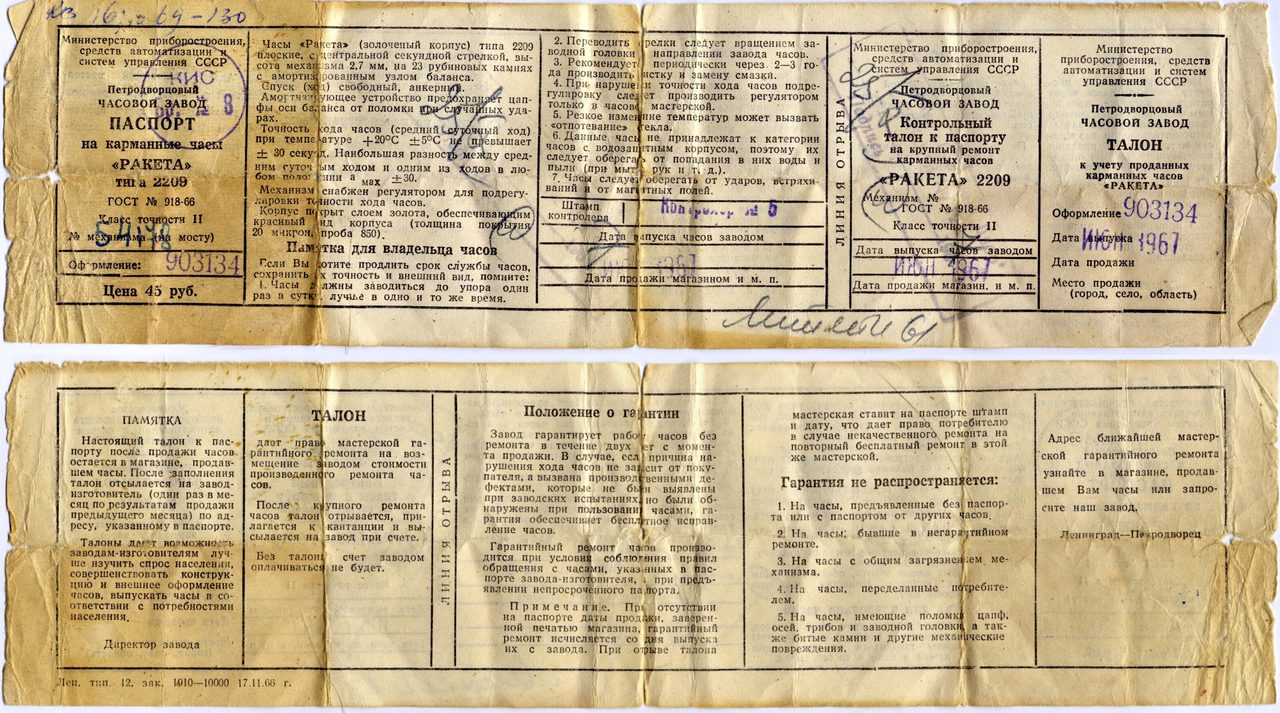 Министерство приборостроения,
средств автоматизации и
систем управления СССР
КИС
8
Петродворцовый
ЧАСОВОЙ ЗАВОД
ПАСПОРТ
на карманные часы
«РАКЕТА»
типа 2209
ГОСТ № 918-66
Класс точности II
№ механизма (на мосту)
Оформление: 903134
Цена 45 руб.
Часы «Ракета» (золоченый корпус) типа 2209
плоские, с центральной секундной стрелкой, высота
механизма 2,7 мм, на 23 рубиновых камнях
с амортизированным узлом баланса.
Спуск (ход) свободный, анкерный.
Амортизирующее устройство предохраняет цап-
фы оси баланса от поломки при случайных уда-
рах.
Точность хода часов (средний суточный ход)
при температуре +20°С ±5°С не превышает
± 30 секунд. Наибольшая разность между сред-
ним суточным ходом и одним из ходов в лю-
бом положении а max ±30.
Механизм снабжен регулятором для подрегу-
лировки точности хода часов.
Корпус покрыт слоем золота, обеспечивающим
красивый вид корпуса (толщина покрытия
20 микрон, проба 850).
Памятка для владельца часов
Если Вы хотите продлить срок службы часов,
сохранить их точность и внешний вид, помните:
1. Часы должны заводиться до упора один
раз в сутки, лучше в одно и то же время.
2. Переводить стрелки следует вращением за-
водной головки в направлении завода часов.
3. Рекомендуется периодически через 2—3 го-
да производить чистку и замену смазки.
4. При нарушении точности хода часов подре-
гулировку следует производить регулятором
только в часовой мастерской.
5. Резкое изменение температур может вызвать
«отпотевание» стекла.
6. Данные часы не принадлежат к категории
часов с водозащитным корпусом, поэтому их
следует оберегать от попадания в них воды и
пыли (при мытье рук и т. д.).
7. Часы следует оберегать от ударов, встряхи-
ваний и от магнитных полей.
Штамп
контролера
Контролер № 5
Дата выпуска часов заводом
1967
Дата продажи магазином и м. п.
ЛИНИЯ ОТРЫВА
Министерство приборостроения,
средств автоматизации и
систем управления СССР
Петродворцовый
ЧАСОВОЙ ЗАВОД
Контрольный
талон к паспорту
на крупный ремонт
карманных часов
«РАКЕТА» 2209
Механизм №
ГОСТ № 918-66
Класс точности II
Дата выпуска часов заводом
ИЮЛ 1967
Дата продажи магазин. и м. п.
Министерство
приборостроения, средств
автоматизации и систем
управления СССР
Петродворцовый
ЧАСОВОЙ ЗАВОД
ТАЛОН
к учету проданных
карманных часов
«РАКЕТА»
Оформление 903134
Дата выпуска
ИЮЛ 1967
Дата продажи
Место продажи
(город, село, область)
ПАМЯТКА
Настоящий талон к пас-
порту после продажи часов
остается в магазине, продав-
шем часы. После заполнения
талон отсылается на завод-
изготовитель (один раз в ме-
сяц по результатам продажи
предыдущего месяца) по ад-
ресу, указанному в паспорте.
Талоны дают возможность
заводам-изготовителям луч-
ше изучить спрос населения,
совершенствовать конструк-
цию и внешнее оформление
часов, выпускать часы в со-
ответствии с потребностями
населения.
Директор завода
Лен. тип. 12, зак. 1910—10000 17.11.66 г.
ТАЛОН
дает право мастерской га-
рантийного ремонта на воз-
мещение заводом стоимости
произведенного ремонта ча-
сов.
После крупного ремонта
часов талон отрывается, при-
лагается к квитанции и вы-
сылается на завод при счете.
Без талона счет заводом
оплачиваться не будет.
ЛИНИЯ ОТРЫВА
Положение о гарантии
Завод гарантирует работу часов без
ремонта в течение двух лет с момен-
та продажи. В случае, если причина на-
рушения хода часов не зависит от поку-
пателя, а вызвана производственными де-
фектами, которые не были выявлены
при заводских испытаниях, но были об-
наружены при пользовании часами, га-
рантия обеспечивает бесплатное исправ-
ление часов.
Гарантийный ремонт часов произво-
дится при условии соблюдения правил
обращения с часами, указанных в пас-
порте завода-изготовителя, и при предъ-
явлении непросроченного паспорта.
Примечание. При отсутствии
на паспорте даты продажи, заверен-
ной печатью магазина, гарантийный
ремонт исчисляется со дня выпуска
их с завода. При отрыве талона
мастерская ставит на паспорте штамп
и дату, что дает право потребителю
в случае некачественного ремонта на
повторный бесплатный ремонт в этой
же мастерской.
Гарантия не распространяется:
1. На часы, предъявленные без паспор-
та или с паспортом от других часов.
2. На часы, бывшие в негарантийном
ремонте.
3. На часы с общим загрязнением ме-
ханизма.
4. На часы, переделанные потребите-
лем.
5. На часы, имеющие поломки цапф,
осей, трибов и заводной головки, а так-
же битые камни и другие механические
повреждения.
Адрес ближайшей мастер-
ской гарантийного ремонта
узнайте в магазине, продав-
шем Вам часы или запро-
сите наш завод.
Ленинград—Петродворец